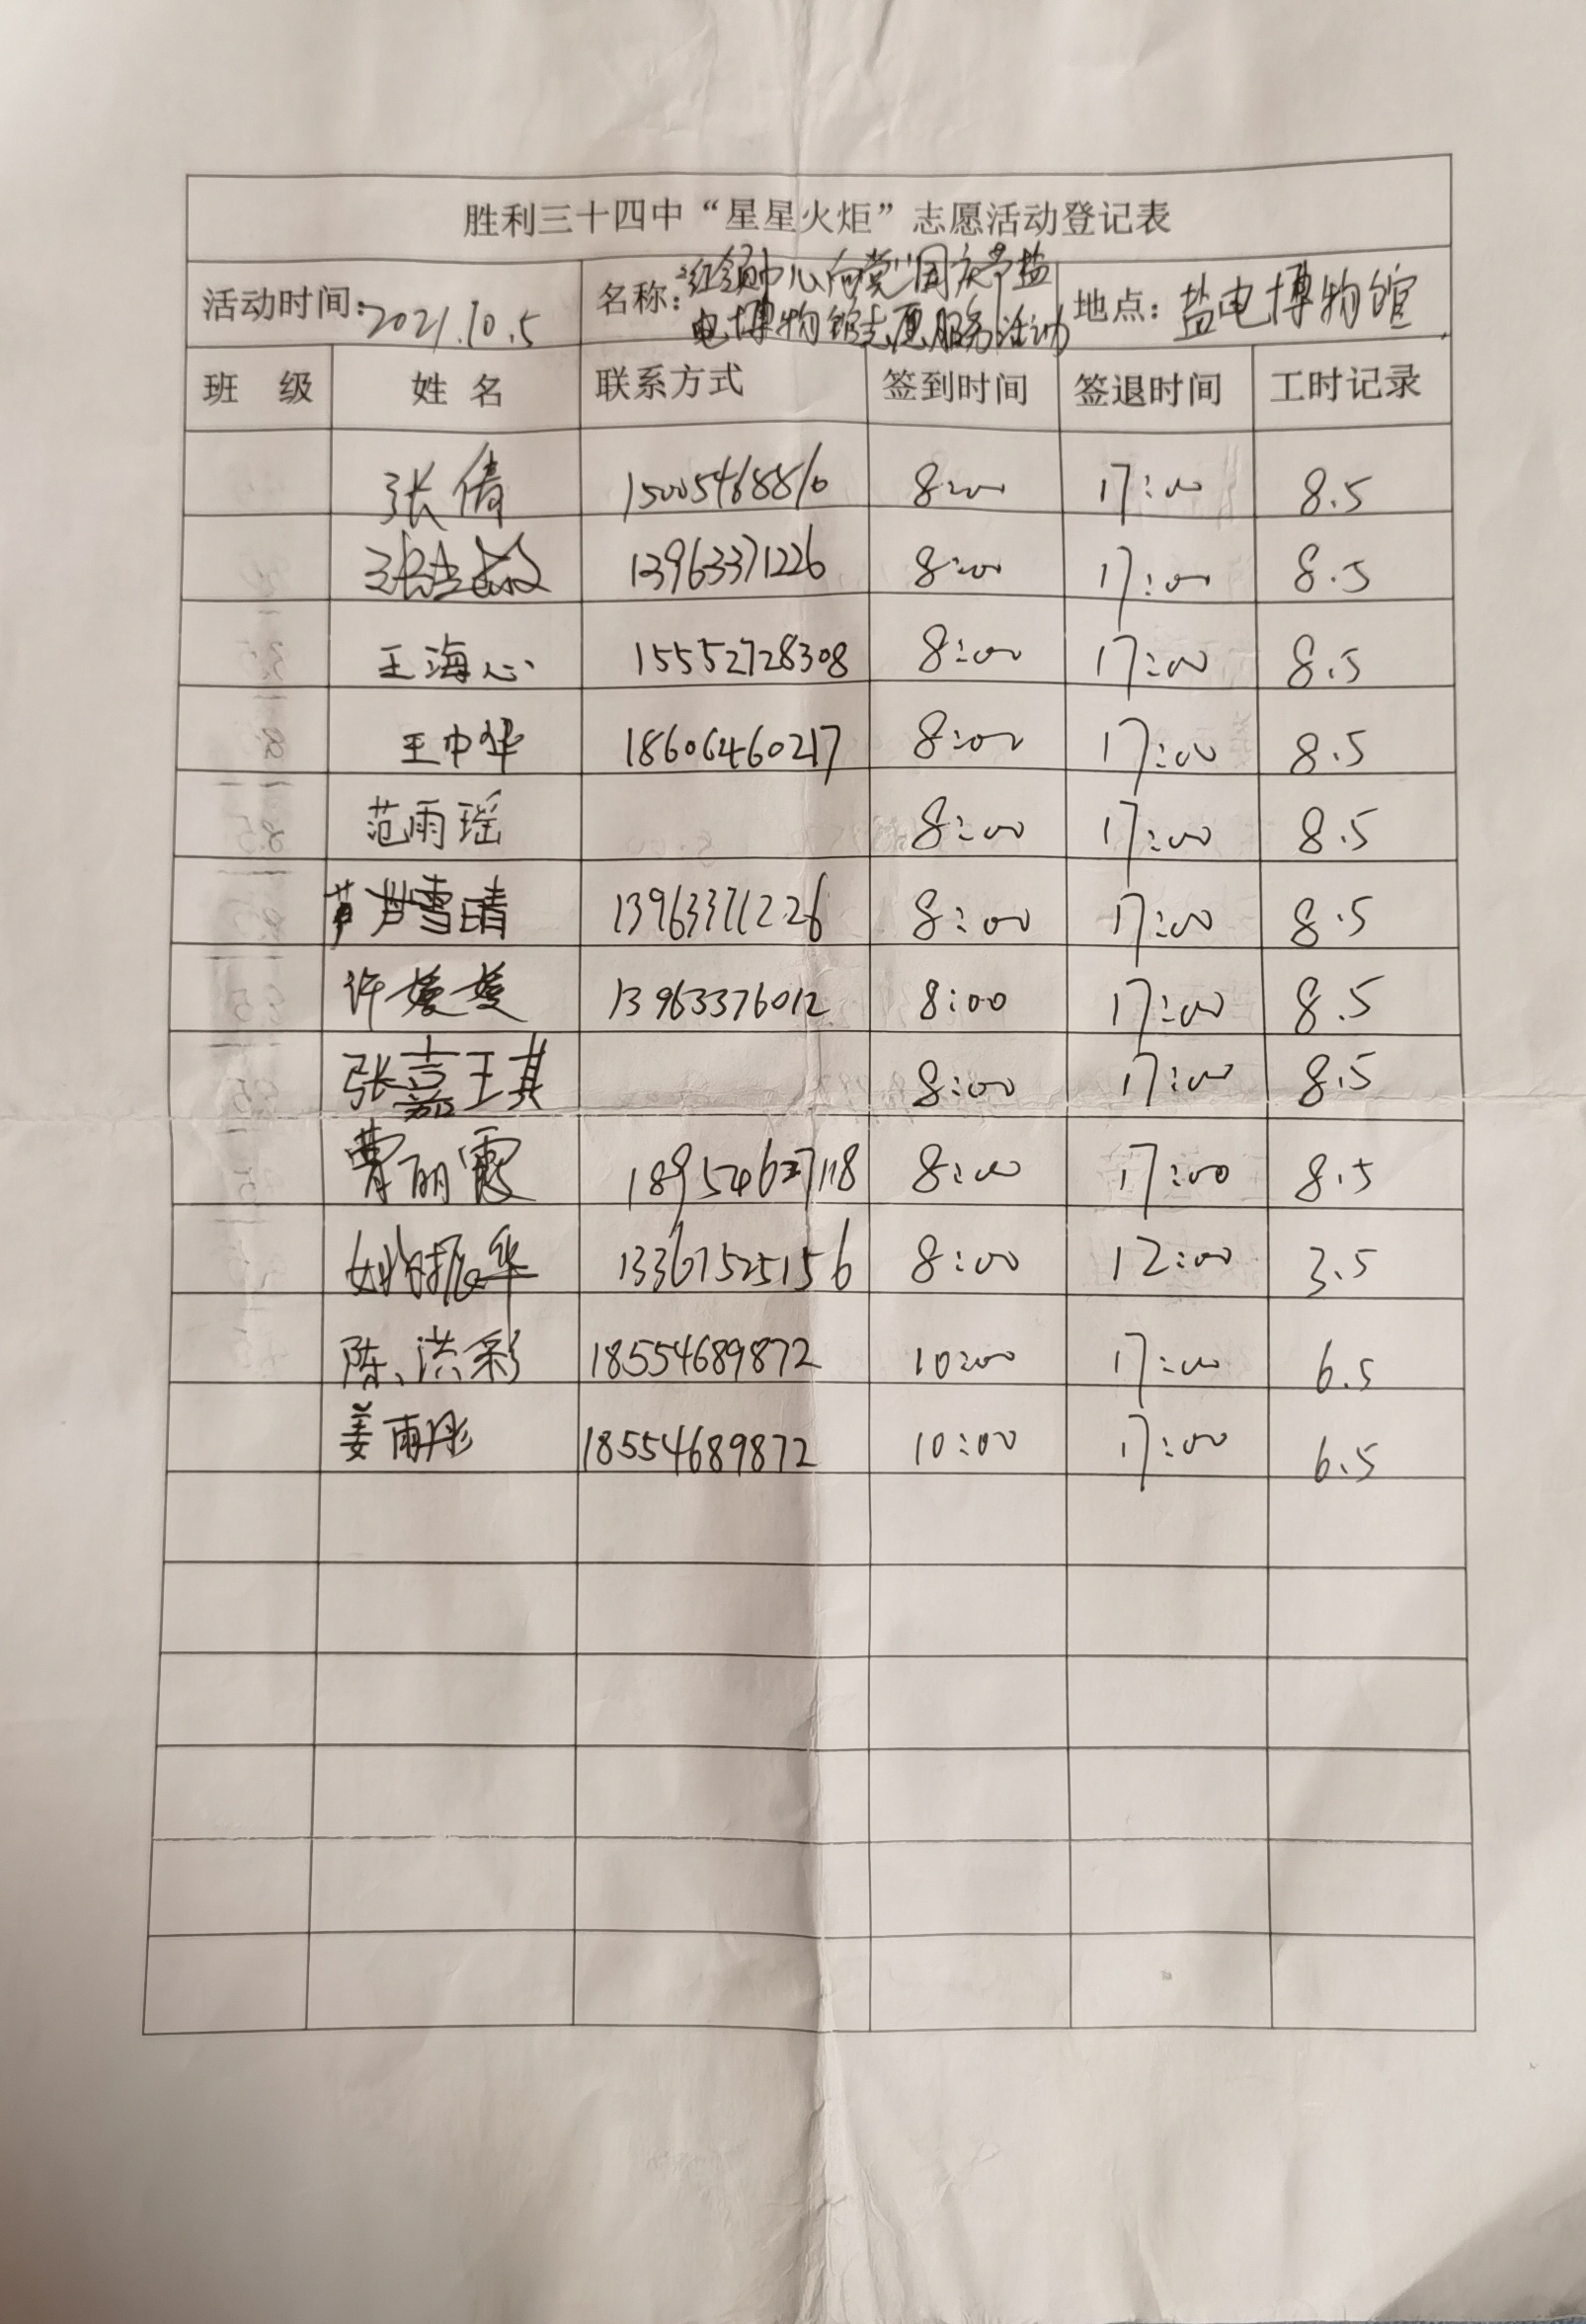 胜利三十四中“星星火炬”志愿活动登记表
活动时间:2021.10.5 名称:“红领巾心向党”国庆节盐 地点:盐电博物馆
电博物馆志愿服务活动
班 级 姓 名 联系方式 签到时间 签退时间 工时记录
张倩 15005468810 8:00 17:00 8.5
13963371226 8:00 17:00 8.5
王海心 15552728308 8:00 17:00 8.5
王中华 18606460217 8:00 17:00 8.5
范雨瑶 8:00 17:00 8.5
芦雪晴 13963371226 8:00 17:00 8.5
许媛媛 13963376012 8:00 17:00 8.5
张嘉琪 8:00 17:00 8.5
曹丽霞 18954637118 8:00 17:00 8.5
姚振华 13361525156 8:00 12:00 3.5
陈洪彩 18554689872 10:00 17:00 6.5
姜雨彤 18554689872 10:00 17:00 6.5